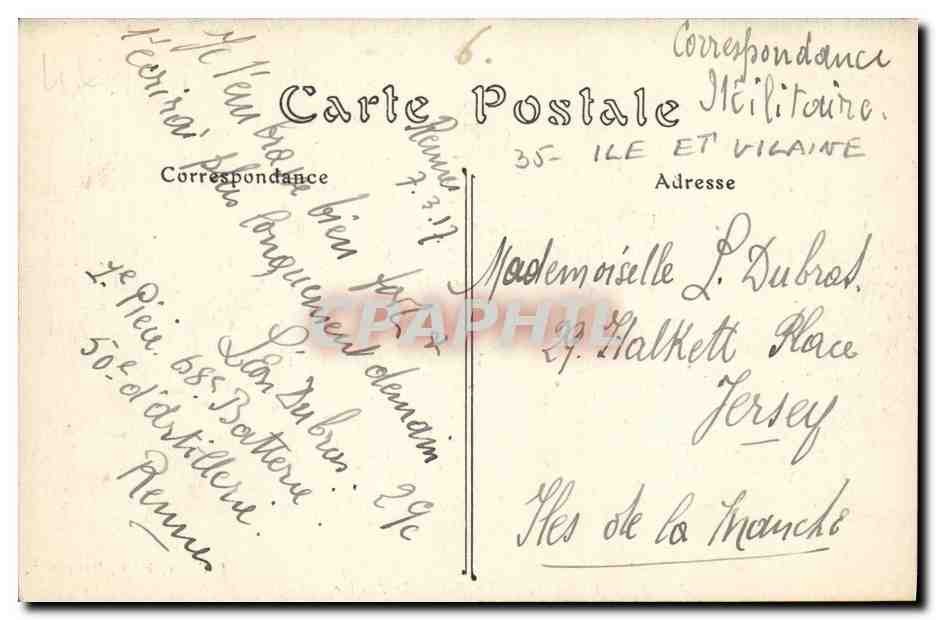 6.
Correspondance
Militaire.
Carte Postale
35- ILE ET VILAINE
Correspondance
Adresse
Rennes
7.3.17.
Je t'embrasse bien fort
t'écrirai plus longuement demain
Léon Dubras.
2e
7e Pièce. 68e Batterie.
50e d'Artillerie.
Rennes
Mademoiselle L. Dubras.
27. Halkett Place
Jersey
Iles de la Manche
CPAPHIL